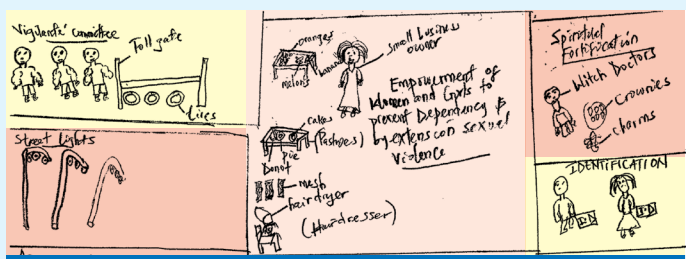 Vigilante' Committee
Toll gate
tires
Street lights
oranges
banana
melons
small business
owner
Empowerment of
Women and Girls to
prevent Dependency &
by extension sexual
Violence
cakes
(Pastries)
pie
Donut
mesh
hair dryer
(Hairdresser)
Spiritual
Fortification
Witch Doctors
Cowries
charms
IDENTIFICATION
I.D
I.D